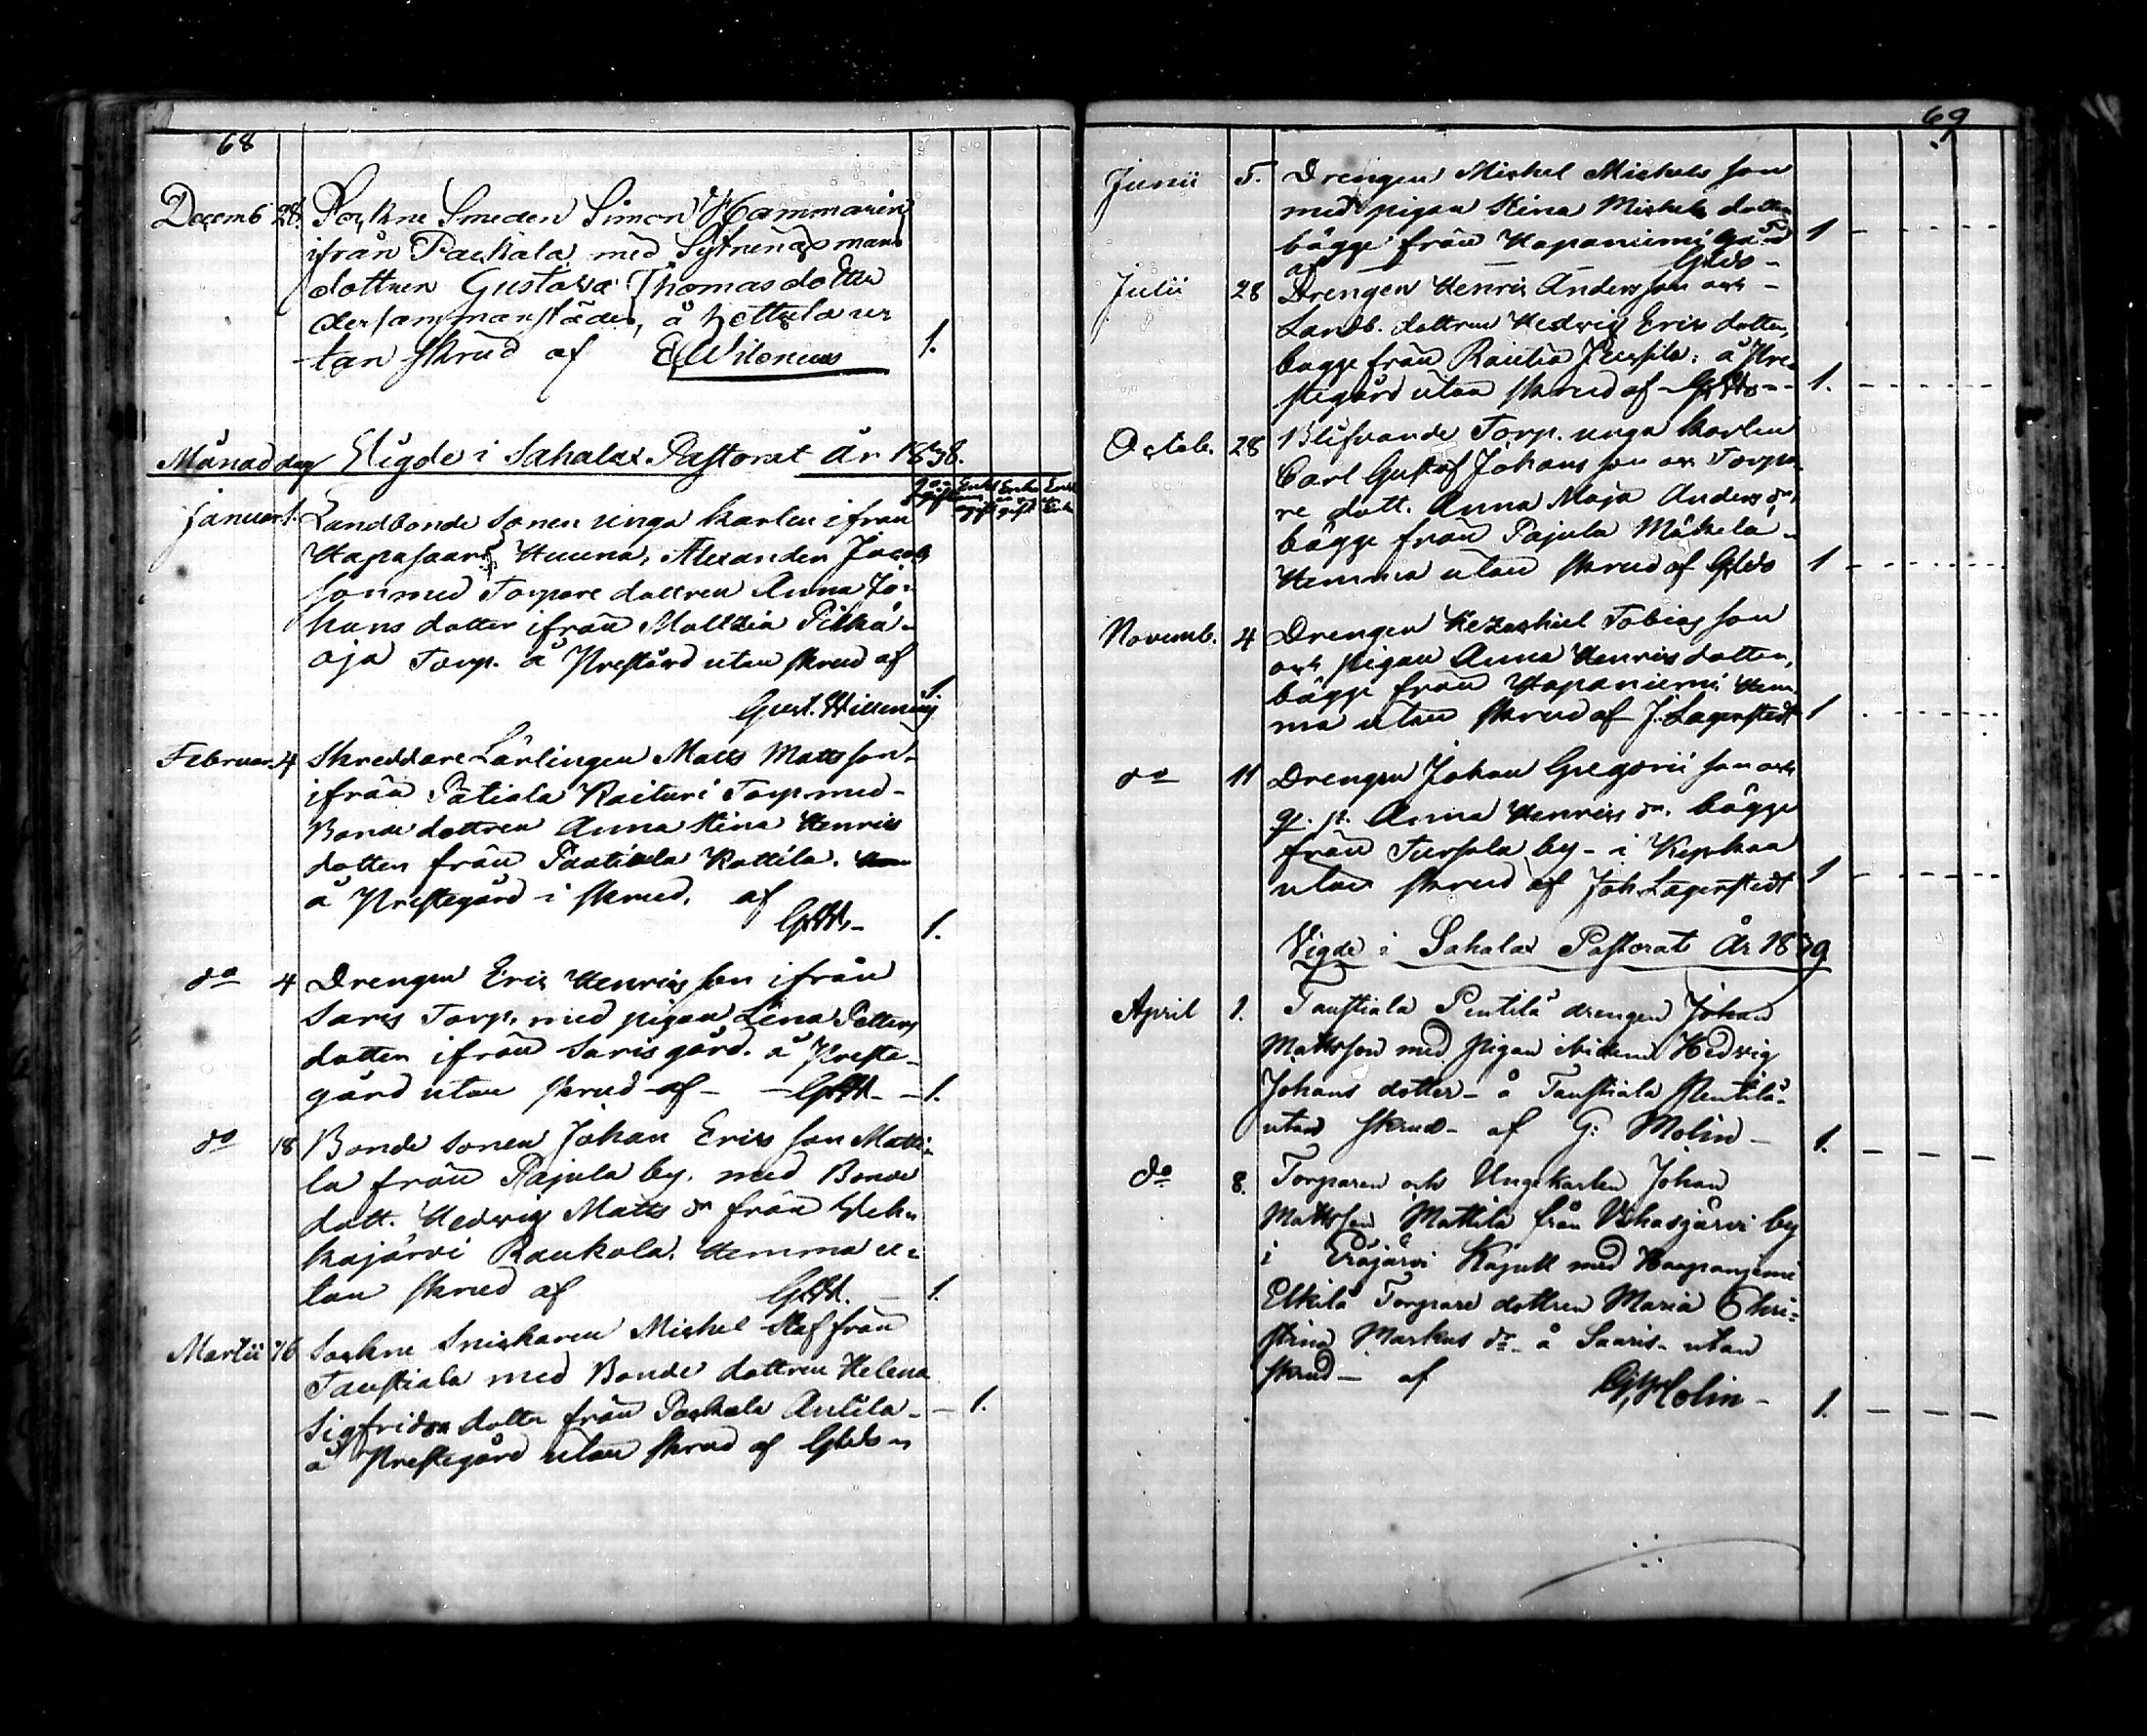 68
Decemb 28. Sockne Smeden Simon Hammarin
ifrån Packala med Sytningsmans
dottren Gustava Thomasdotter
dersammanstädes, å Kettula u
tan skrud af E Wilenius 1.
Månad dag Vigde i Sahalax Pastorat År 1838.
Januar 1. Landbonde Sonen unga karlen ifrån
Hapasaari Huuna, Alexander Jacobs
son med Torpare dottren Anna Jo-
hans dotter ifrån Moltzia Pitkä-
oja Torp. å Prestgård utan skrud af
Gust. Willenius 1.
Februar. 4 Skreddare Lärlingen Matts Mattsson
ifrån Pätiala Raituri Torp med
Bonde dottren Anna Stina Henrics
dotter från Paatiala Kottila.
å Prestegård i skrud. af
GWs 1.
do 4 Drengen Eric Henrics son ifrån
Saris Torp. med pigan Lena Petters
dotter ifrån Saris gård. å Preste-
gård utan skrud af GWs 1.
do 18 Bonde Sonen Johan Erics son Matti-
la från Pajula by. med Bonde
dott. Hedvig Matts dr från Vehka
kajärvi Raukola. Hemma u-
tan skrud af GWs. 1.
Martii 16 Sockne Snickaren Michel Staf från
Taustiala med Bonde dottren Helena
Sigfrids dotter från Packala Antila 1.
å Prestegård utan skrud af GWs
69
Junii 5. Drengen Michel Michels son
med pigan Stina Michels dotter
bägge från Hapaniemi gård 1
af GWs
Julii 28 Drengen Henric Andersson och
Landb. dottren Hedvig Erics dotter,
bägge från Rautia Pursila: å Pre
stegård utan skrud af GWs 1.
Octob. 28 Blifvande Torp. unga karlen
Carl Gustaf Johans son och Torpa
re dott. Anna Maja Anders dr
bägge från Pajula Mäkelä
Hemma utan skrud af GWs 1
Novemb. 4 Drengen Hezechiel Tobias son
och pigan Anna Henrics dotter,
bägge från Hapaniemi Hem
ma utan skrud af J. Lagerstedt 1
do 11 Drengen Johan Gregorii son och
q. p. Anna Henrics dr. bägge
från Tursola by i Kephaa
utan skrud af Joh. Lagerstedt 1
Vigde i Sahalax Pastorat År 1839
April 1. Taustiala Pentilä drengen Johan
Mattsson med pigan ibidem Hedvig
Johans dotter å Taustiala Pentilä
utan skrud af G: Molin 1.
do 8. Torparen och Ungekarlen Johan
Mattsson Mattila från Vihasjärvi by
i Eräjärvi Kapell med Haapaniemi
Elkilä Torpare dottren Maria Chri-
stina Markus dr å Saaris utan
skrud af G, Molin 1.